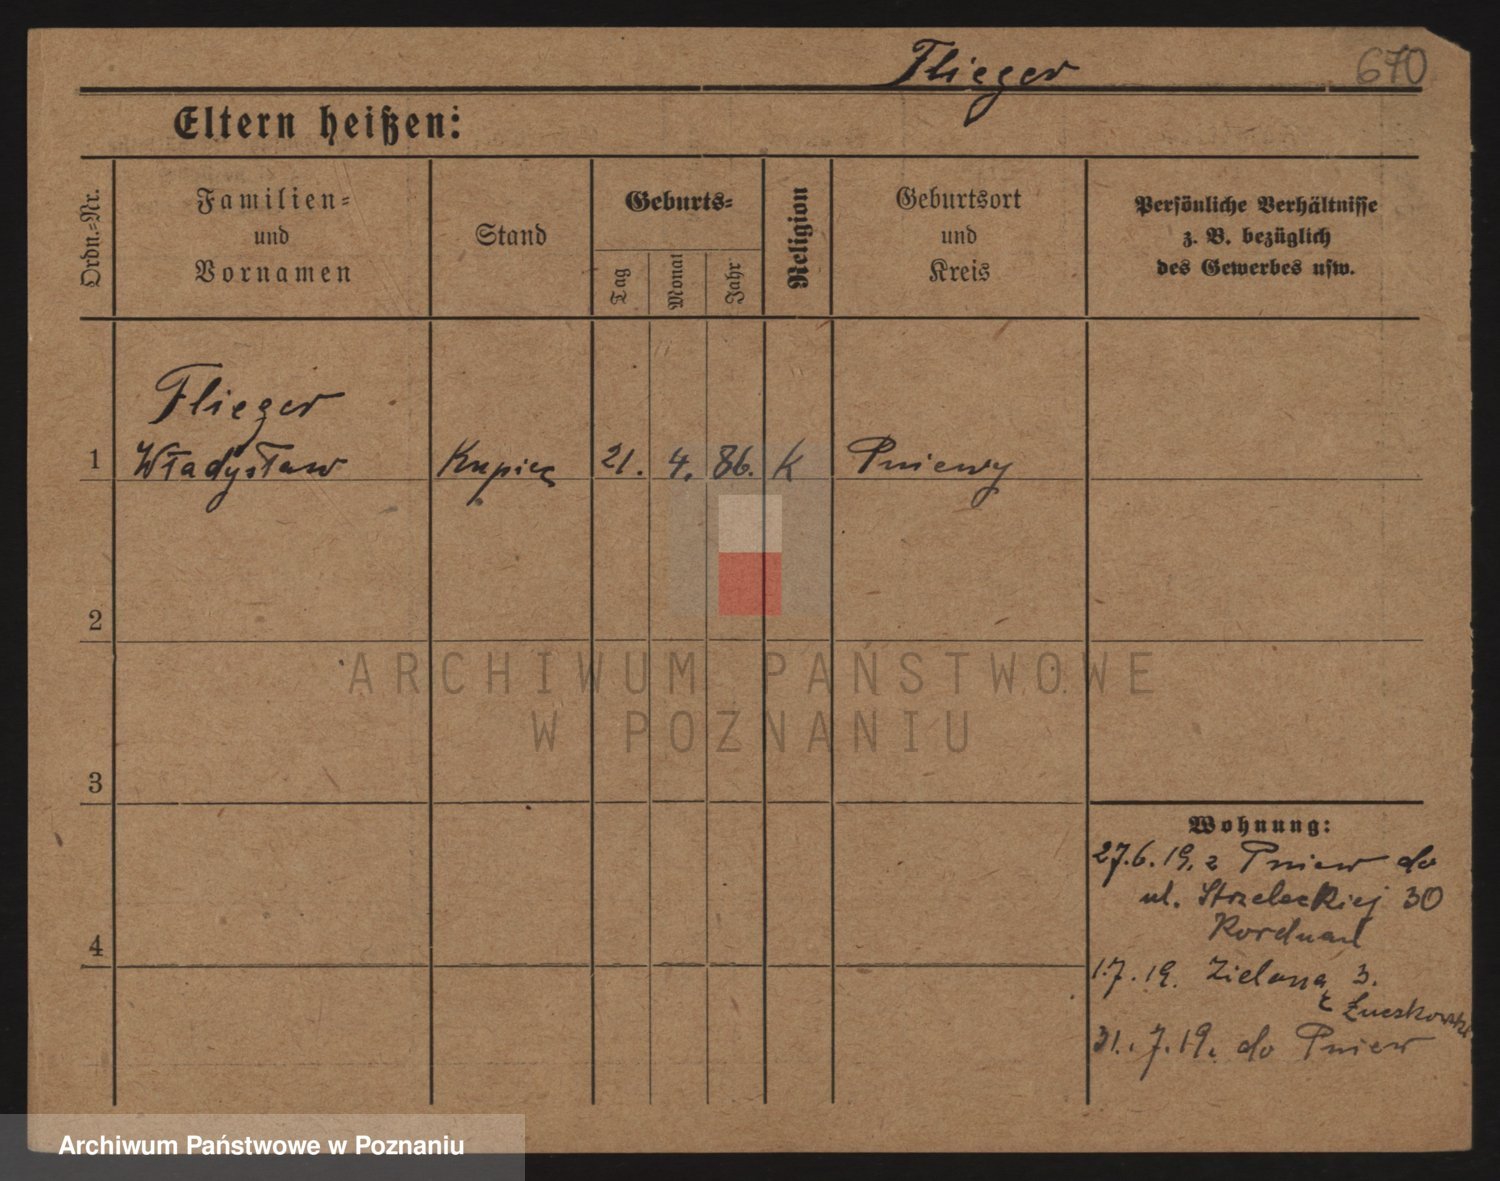 Flieger
670
Eltern heißen:
Ordn.-Nr.
Familien-
und
Vornamen
Stand
Geburts-
Tag
Monat
Jahr
Religion
Geburtsort
und
Kreis
Persönliche Verhältnisse
z. B. bezüglich
des Gewerbes usw.
Flieger
1 Władysław Kupiec 21. 4. 86. K Pniewy
2
ARCHIWUM PAŃSTWOWE
W POZNANIU
3
Wohnung:
27.6.19. z Pniew do
ul. Strzeleckiej 30
4
1.7.19. Zielona 3.
31.7.19. do Pniew
Archiwum Państwowe w Poznaniu